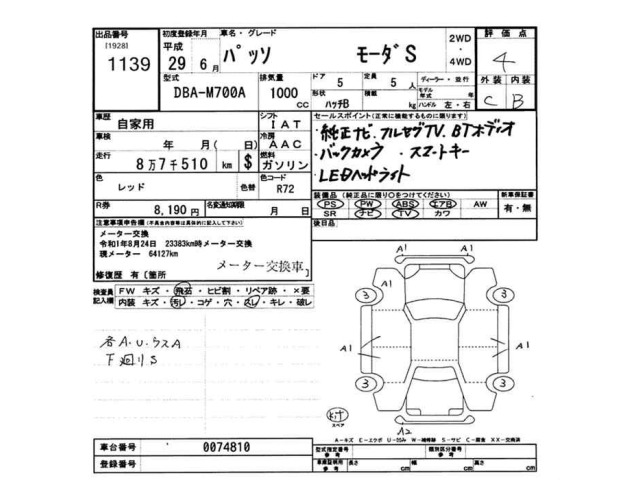 出品番号 初度登録年月 車名・グレード 2WD 評価点
[1928] 平成 パッソ モーダS ・ 4
1139 29年 6月 4WD
型式 排気量 ドア 5 定員 5人 ディーラー・並行 外装 内装
DBA-M700A 1000cc 形状 ハッチB 積載 kg モデル年式 年 ハンドル 左・右 C B
車歴 自家用 シフト IAT セールスポイント(正常に機能するものに限ります)
車検 年 月(日) 冷房 AAC ・純正ナビ・フルセグTV、BTオーディオ
走行 8万7千510km $ 燃料 ガソリン ・バックカメラ ・スマートキー
色 レッド 色替 色コード R72 ・LEDヘッドライト
R券 8,190円 名変通知期限 月 日 装備品(純正品に限り○をつけてください) 新車保証書
PS PW ABS エアB AW 有・無
SR ナビ TV カワ
注意事項申告欄(不具合内容等は具体的に記入して下さい) 後日品
メーター交換
令和1年8月24日 23383km時メーター交換
現メーター 64127km
メーター交換車
修復歴 有[箇所
検査員記入欄 FW キズ・飛石・ヒビ割・リペア跡・×要
内装 キズ・汚レ・コゲ・穴・スレ・キレ・破レ
各A.U.ウスA
下廻りS
A1 A1
3 3
A1 A1
3 3
スペア A2
A-キズ E-エクボ U-凹み W-補修跡 S-サビ C-腐食 XX-交換済
車台番号 0074810 型式指定番号 参考 類別区分番号 参考
登録番号 車庫証明用 参考 長さ cm 幅 cm 高さ cm